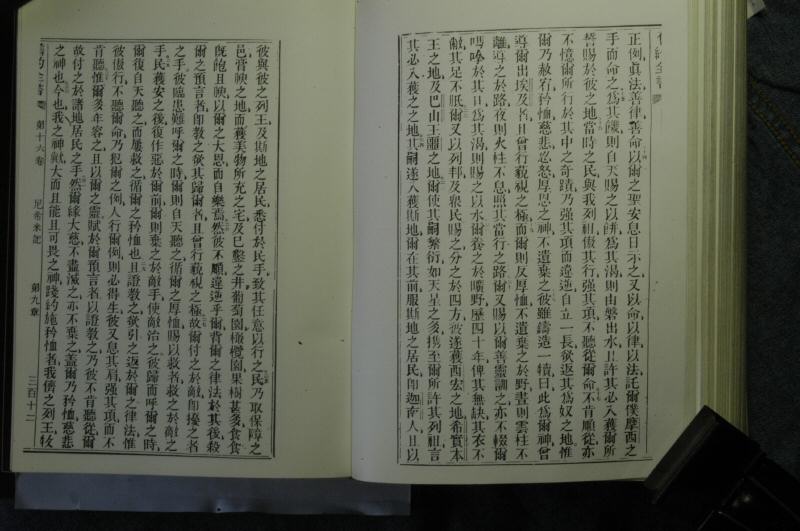 正例眞法善律善命以爾之聖安息日示之又以命以律以法託爾僕摩西之
手而命之爲其饑則自天賜之以餅爲其渴則由磐出水且許其必入獲爾所
誓賜於彼之地當時之民與我列祖傲其行強其項不聽從爾命不肯順從亦
不憶爾所行於其中之奇蹟乃強其項而違逆自立一長欲返其爲奴之地惟
爾乃赦宥矜恤慈悲忍怒厚恩之神不遺棄之彼雖鑄造一犢曰此爲爾神曾
導爾出埃及者且曾行藐視之極而爾則反厚恤不遺棄之於野晝則雲柱不
離導之於路夜則火柱不息照其當行之路爾又賜以爾善靈訓之亦不輟爾
嗎嗱於其口爲其渴則賜之以水爾養之於曠野歷四十年俾其無缺其衣不
敝其足不胝爾又以列邦及衆民賜之分之於四方彼遂獲西宏之地希實本
王之地及巴山王噩之地爾使其嗣繁衍如天星之多攜至爾所許其列祖言
其必入獲之之地其嗣遂入獲斯地爾在其前服斯地之居民卽迦南人且以
彼與彼之列王及斯地之居民悉付於民手致其任意以行之民乃取保障之
邑膏腴之地而獲美物所充之宅及已鑿之井葡萄園橄欖園果樹甚多食食
既飽且腴以爾之大恩而自樂焉然彼不順違逆乎爾背爾之律法於其後殺
爾之預言者卽教之欲其歸爾者且曾行藐視之極故爾付之於敵卽擾之者
之手彼臨患難呼爾之時爾則自天聽之循爾之厚恤賜以救者救之於敵之
手民獲安之後復作惡於爾前爾則棄之於敵手使敵治之彼歸而呼爾之時
爾復自天聽之而屢救之循爾之矜恤也且證教之欲引之返於爾之律法惟
彼傲行不聽爾命乃犯爾之例人行爾例則必得生彼又息其肩強其項而不
肯聽惟爾多年容之且以爾之靈賦於爾預言者以證教之乃彼不肯聽從爾
故付之於諸地居民之手然爾緣大慈不盡滅之亦不棄之蓋爾乃矜恤慈悲
之神也今也我之神歟大而且能且可畏之神踐約施矜恤者我儕之列王牧
第十六卷 尼希米記 第九章 三百十二